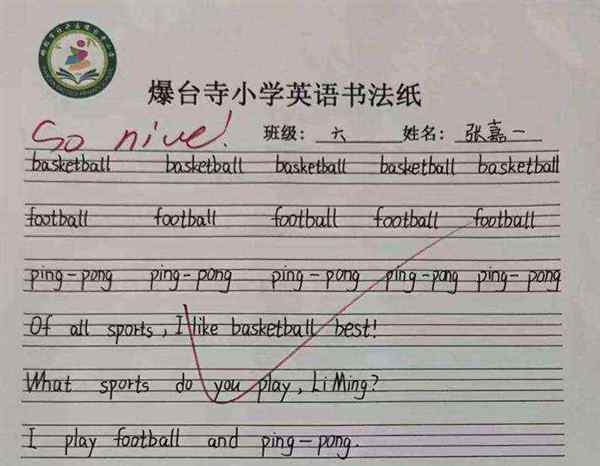 爆台寺小学英语书法纸
So nive!
班级: 六 姓名: 张嘉一
basketball basketball basketball basketball basketball
football football football football football
ping-pong ping-pong ping-pong ping-pong ping-pong
Of all sports, I like basketball best!
What sports do you play, Li Ming?
I play football and ping-pong.